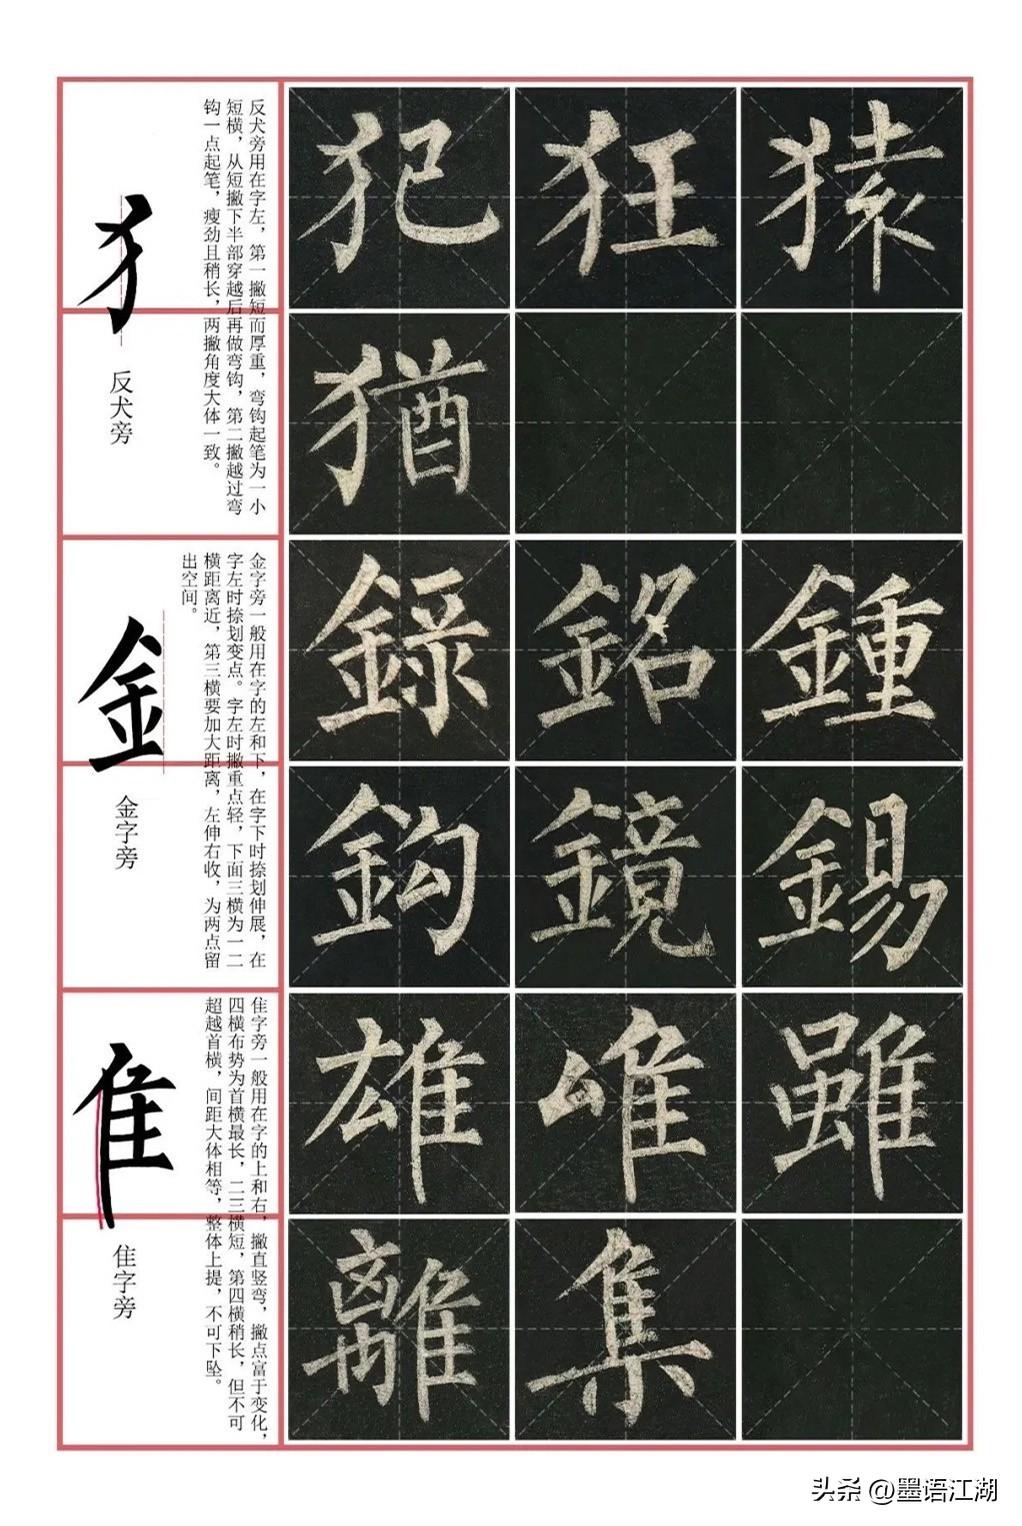 犭
反犬旁
反犬旁用在字左，第一撇短而厚重，弯钩起笔为一小
短横，从短撇下半部穿越后再做弯钩，第二撇越过弯
钩一点起笔，瘦劲且稍长，两撇角度大体一致。
犯 狂 猿
猶
金
金字旁
金字旁一般用在字的左和下，在字下时捺划伸展，在
字左时捺划变点。字左时撇重点轻，下面三横为一二
横距离近，第三横要加大距离，左伸右收，为两点留
出空间。
録 銘 鍾
鈎 鏡 錫
隹
隹字旁
隹字旁一般用在字的上和右，撇直竖弯，撇点富于变化，
四横布势为首横最长，二三横短，第四横稍长，但不可
超越首横，间距大体相等，整体上提，不可下坠。
雄 唯 雖
離 集
头条 @墨语江湖